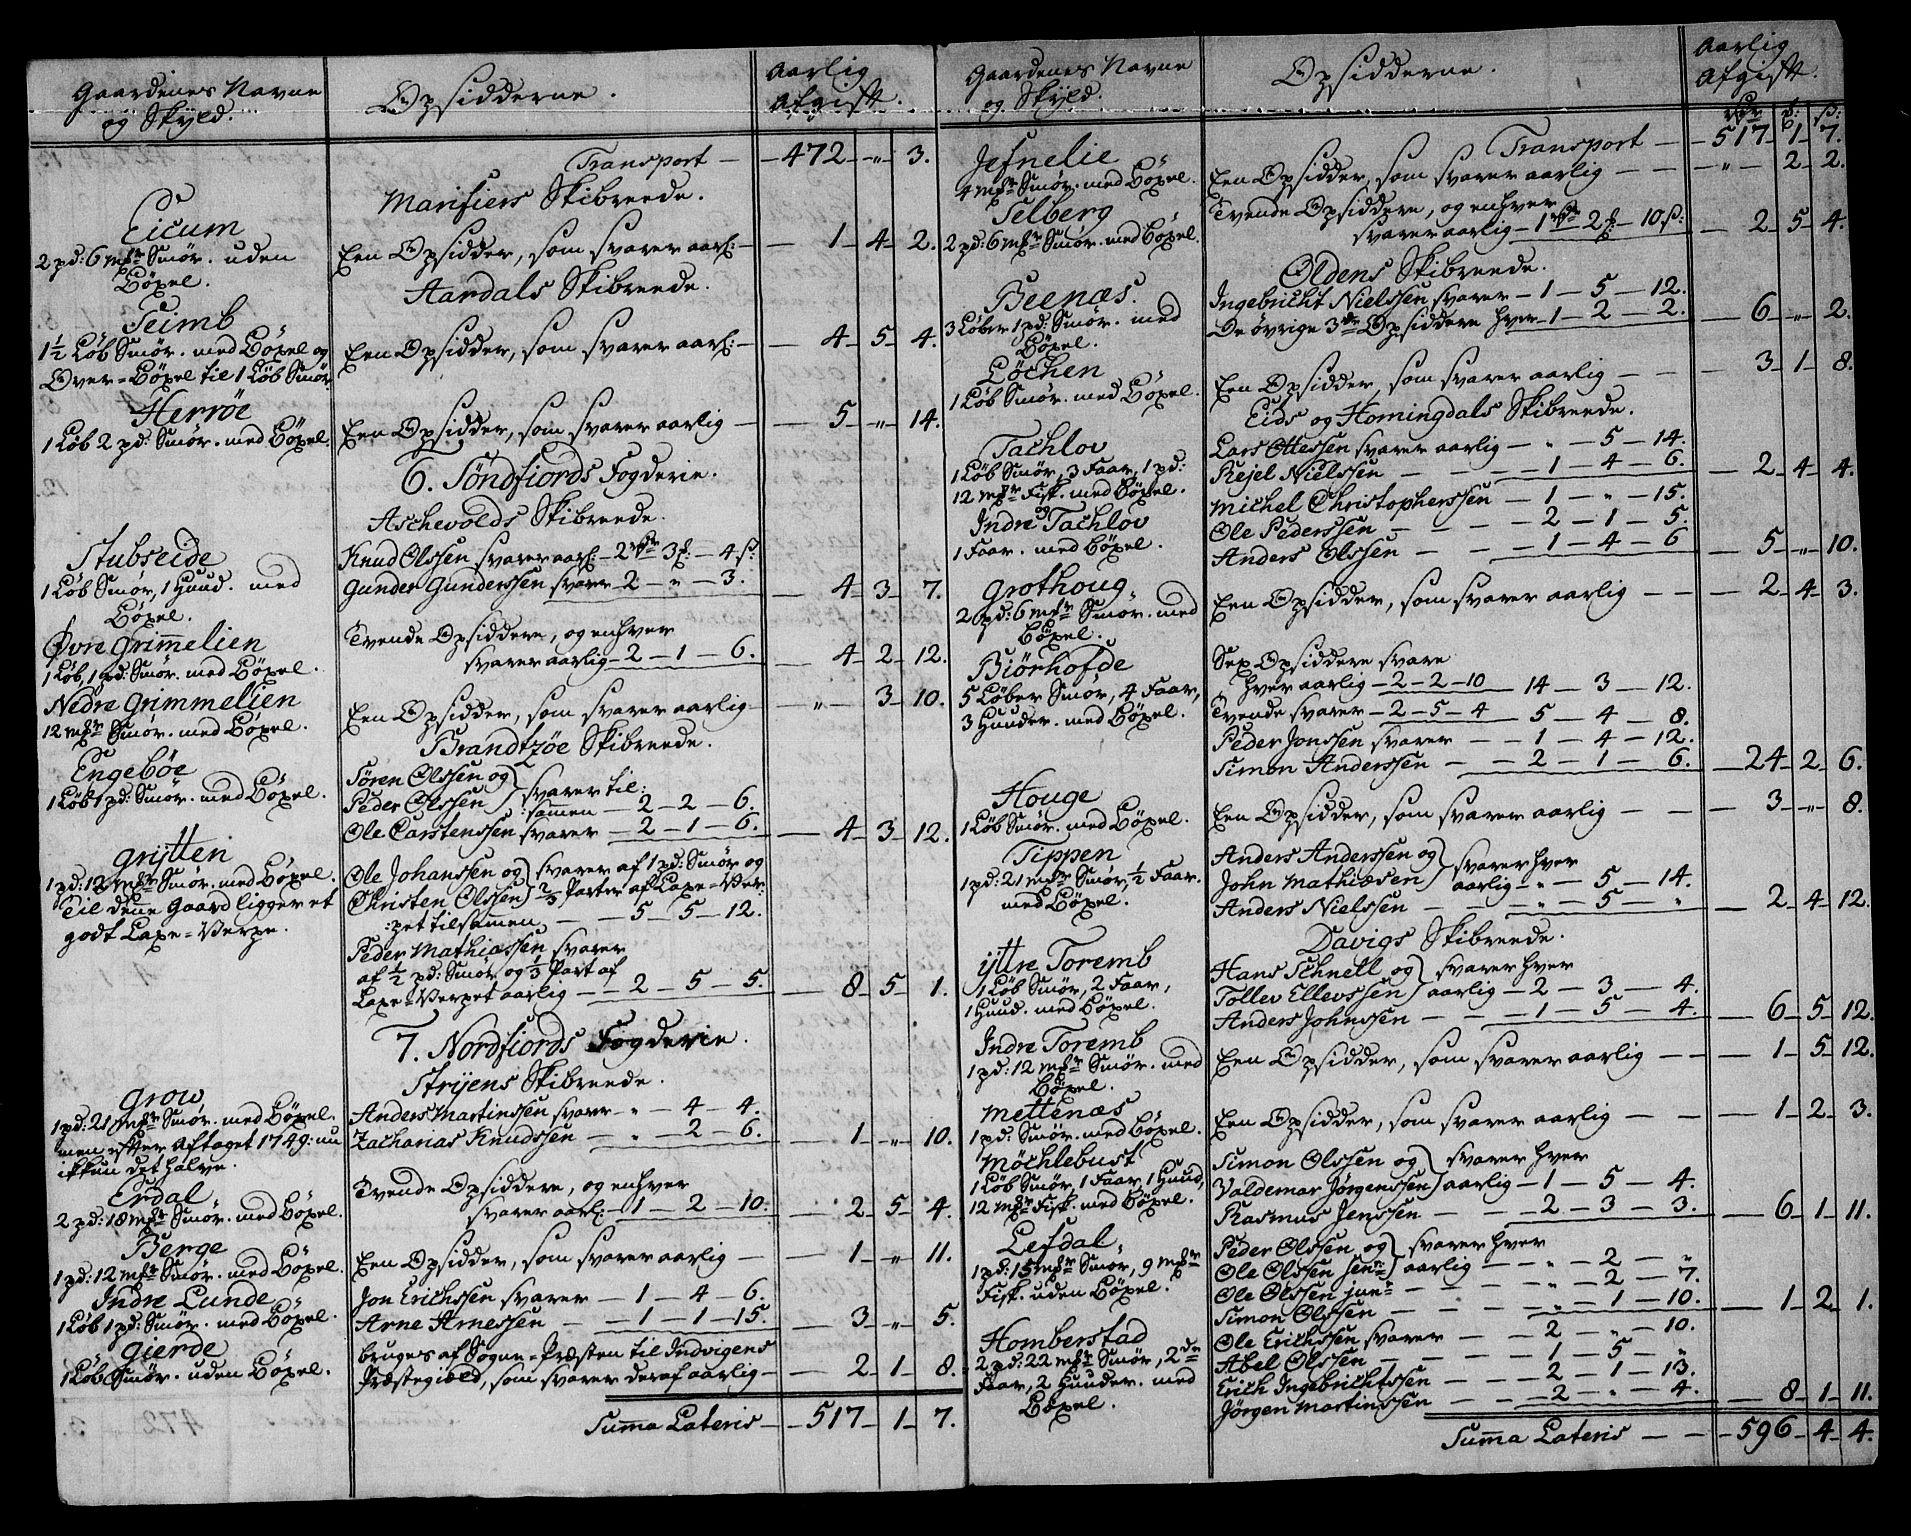 Gaardenes Navne
og Skyld.
Opsidderne.
Aarlig
Afgift.
Transport — 472 — „ — 3.
Marifiers Skibreede.
Eicum
2 pd: 6 mkr Smør. uden
Bøxel.
Een Opsidder, som svarer aarl: — 1 — 4 — 2.
Aardals Skibreede.
Seimb
1½ Løb Smør. med Bøxel og
Over=Bøxel til 1 Løb Smør
Een Opsidder, som svarer aarl: — 4 — 5 — 4.
Herrøe
1 Løb 2 pd: Smør. med Bøxel.
Een Opsidder, som svarer aarlig — 5 — „ — 14.
6. Søndfiords Fogderie.
Aschevolds Skibreede.
Stubseide
1 Løb Smør, 1 Huud. med
Bøxel.
Knud Olssen svarer aarl: — 2 rdr 3 ƒ: — 4 ß:
Gunder Gunderssen svarer 2 — „ — 3. — 4 — 3 — 7.
Øvre Grimmelien
1 Løb, 1 pd: Smør. med Bøxel.
Tvende Opsiddere, og enhver
svarer aarlig — 2 — 1 — 6. — 4 — 2 — 12.
Nedre Grimmelien
12 mkr Smør. med Bøxel.
Een Opsidder, som svarer aarlig — „ — 3 — 10.
Brandtzøe Skibreede.
Engebøe
1 Løb 1 pd: Smør. med Bøxel.
Søren Olssen og
Peder Olssen } svarer til:
:samen — 2 — 2 — 6.
Ole Carstenssen svarer — 2 — 1 — 6. — 4 — 3 — 12.
Grytten
1 pd: 12 mkr Smør. med Bøxel.
Til denne Gaard ligger et
godt Laxe=Verpe.
Ole Johanssen og } svarer af 1 pd: Smør og
Christen Olssen } 2/3 Parter af Laxe=Ver:
:pet tilsamen — 5 — 5 — 12.
Peder Mathiassen svarer
af ½ pd: Smør og 1/3 Part af
Laxe=Verpet aarlig — 2 — 5 — 5. — 8 — 5 — 1.
7. Nordfiords Fogderie.
Stryens Skibreede.
Grow
1 pd: 21 mkr Smør. med Bøxel.
men efter Aftaget 1749: nu
ikkun det halve.
Anders Martinssen svarer — „ — 4 — 4.
Zacharias Knudssen — „ — 2 — 6. — 1 — „ — 10.
Erdal
2 pd: 18 mkr Smør. med Bøxel.
Tvende Opsiddere, og enhver
svarer aarl: — 1 — 2 — 10. — 2 — 5 — 4.
Berge
1 pd: 12 mkr Smør. med Bøxel.
Een Opsidder, som svarer aarlig — 1 — „ — 11.
Indre Lunde
1 Løb 1 pd: Smør. med Bøxel.
Jon Erichssen svarer — 1 — 4 — 6.
Arne Arnessen — 1 — 1 — 15. — 3 — „ — 5.
Gierde
1 Løb Smør. uden Bøxel.
bruges af Sogne=Præsten til Indvigens
Præstegield, som svarer deraf aarlig — 2 — 1 — 8.
Summa Lateris — 517 — 1 — 7.
Gaardenes Navne
og Skyld.
Opsidderne.
Aarlig
Afgift.
rdr ƒ: ß:
Transport — 517 — 1 — 7.
Jefnelie
4 mkr Smør. med Bøxel.
Een Opsidder, som svarer aarlig — „ — 2 — 2.
Selberg
2 pd: 6 mkr Smør. med Bøxel.
Tvende Opsiddere, og enhver
svarer aarlig — 1 rdr 2 ƒ: — 10 ß: — 2 — 5 — 4.
Oldens Skibreede.
Beenæs.
3 Løber 1 pd: Smør. med
Bøxel.
Ingebricht Nielssen svarer — 1 — 5 — 12.
De øvrige 3de Opsiddere hver — 1 — 2 — 2. — 6 — „ — 2.
Løchen
1 Løb Smør. med Bøxel.
Een Opsidder, som svarer aarlig — 3 — 1 — 8.
Eids og Homingdals Skibreede.
Tachlov
1 Løb Smør, 3 Faar, 1 pd:
12 mkr Fisk. med Bøxel.
Lars Ottessen svarer aarlig — „ — 5 — 14.
Kejel Nielssen — 1 — 4 — 6. — 2 — 4 — 4.
Indre og Tachlov
1 Faar. med Bøxel.
Michel Christopherssen — 1 — „ — 15.
Ole Pederssen — 2 — 1 — 5.
Anders Olssen — 1 — 4 — 6 — 5 — „ — 10.
Grothoug
2 pd: 6 mkr Smør. med
Bøxel.
Een Opsidder, som svarer aarlig — 2 — 4 — 3.
Biørhofde
5 Løber Smør, 4 Faar,
3 Huuder. med Bøxel.
Sex Opsiddere svare
hver aarlig — 2 — 2 — 10 — 14 — 3 — 12.
Tvende svarer — 2 — 5 — 4 — 5 — 4 — 8.
Peder Jonssen svarer — 1 — 4 — 12.
Simon Anderssen — 2 — 1 — 6. — 24 — 2 — 6.
Houge
1 Løb Smør. med Bøxel.
Een Opsidder, som svarer aarlig — 3 — „ — 8.
Tippen
1 pd: 21 mkr Smør, ½ Faar.
med Bøxel.
Anders Anderssen og
John Mathiæsen } svarer hver
aarlig — „ — 5 — 14.
Anders Nielssen — „ — 5 — „ — 2 — 4 — 12.
Davigs Skibreede.
ijttre Toremb
1 Løb Smør, 2 Faar,
1 Huud. med Bøxel.
Hans Schnell og } svarer hver
Tollev Ellevssen } aarlig — 2 — 3 — 4.
Anders Johnssen — 1 — 5 — 4. — 6 — 5 — 12.
Indre Toremb
1 pd: 12 mkr Smør. med
Bøxel.
Een Opsidder, som svarer aarlig — 1 — 5 — 12.
Mettenæs
1 pd: Smør. med Bøxel.
Een Opsidder, som svarer aarlig — 1 — 2 — 3.
Møchlebust
1 Løb Smør, 1 Faar, 1 Huud,
12 mkr Fisk. med Bøxel.
Simon Olssen og } svarer hver
Valdemar Jørgenssen } aarlig — 1 — 5 — 4.
Rasmus Jenssen — 2 — 3 — 3. — 6 — 1 — 11.
Lefdal
1 pd: 15 mkr Smør, 9 mkr
Fisk. uden Bøxel.
Peder Olssen og } svarer hver
Ole Olssen sen: } aarlig — „ — 2 — „
Ole Olssen jun: — „ — 2 — 7.
Simon Olssen — „ — 1 — 10. — 1 — 2 — 1.
Homberstad
2 pd: 22 mkr Smør, 2de
Faar, 2 Huuder. med
Bøxel.
Ole Erichssen svarer — 2 — „ — 10.
Abel Olssen — 1 — 5 — „
Erich Ingebrichtssen — 2 — 1 — 13.
Jørgen Martinssen — 2 — „ — 4. — 8 — 1 — 11.
Summa Lateris — 596 — 4 — 4.